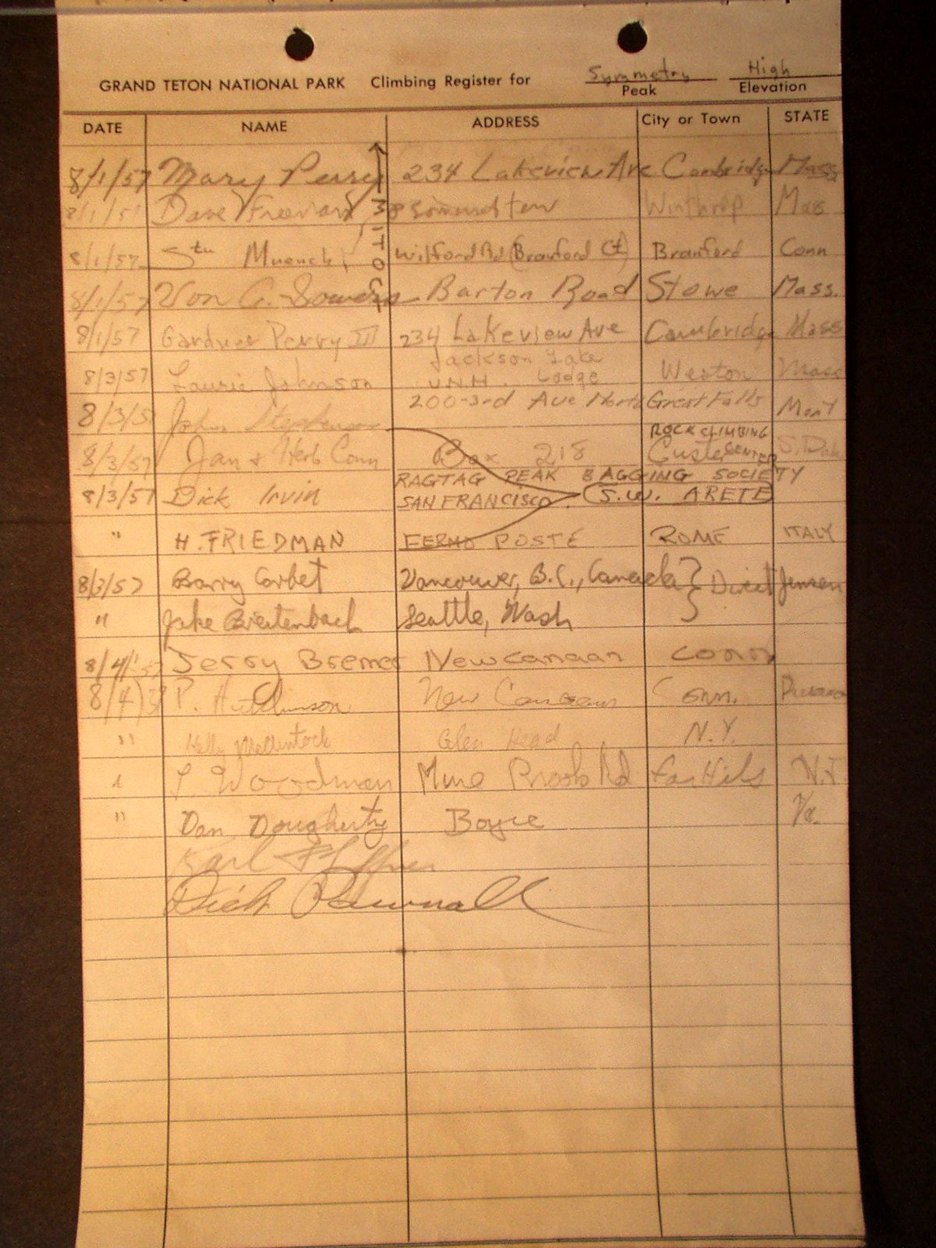 GRAND TETON NATIONAL PARK Climbing Register for Symmetry Peak High Elevation
DATE NAME ADDRESS City or Town STATE
8/1/57 Mary Perry 234 Lakeview Ave Cambridge Mass
8/1/57 Dave 8 Winthrop Mass
8/1/57 Stu Muench Wilford Rd (Branford Ct) Branford Conn
8/1/57 Von G. Sowers Barton Road Stowe Mass.
8/1/57 Gardner Perry III 234 Lakeview Ave Cambridge Mass
Jackson Lake
8/3/57 Laurie Johnson U.N.H. Lodge Weston Mass
8/3/57 John Stephenson 200-3rd Ave North Great Falls Mont
ROCK CLIMBING
8/3/57 Jan & Herb Conn Box 218 Custer CENTER S. Dak
RAGTAG PEAK BAGGING SOCIETY
8/3/57 Dick Irvin SAN FRANCISCO S.W. ARETE
" H. FRIEDMAN FERMO POSTE ROME ITALY
8/3/57 Barry Corbet Vancouver, B.C., Canada } Direct Jensen
" Jake Breitenbach Seattle, Wash
8/4/57 Jerry Bremer New Canaan Conn
8/4/57 P. Hutchinson New Canaan Conn.
" Glen Head N.Y.
" T Woodman Mine Brook Rd Far Hills N.J.
" Dan Dougherty Boyce Va.
Karl
Dick Pownall